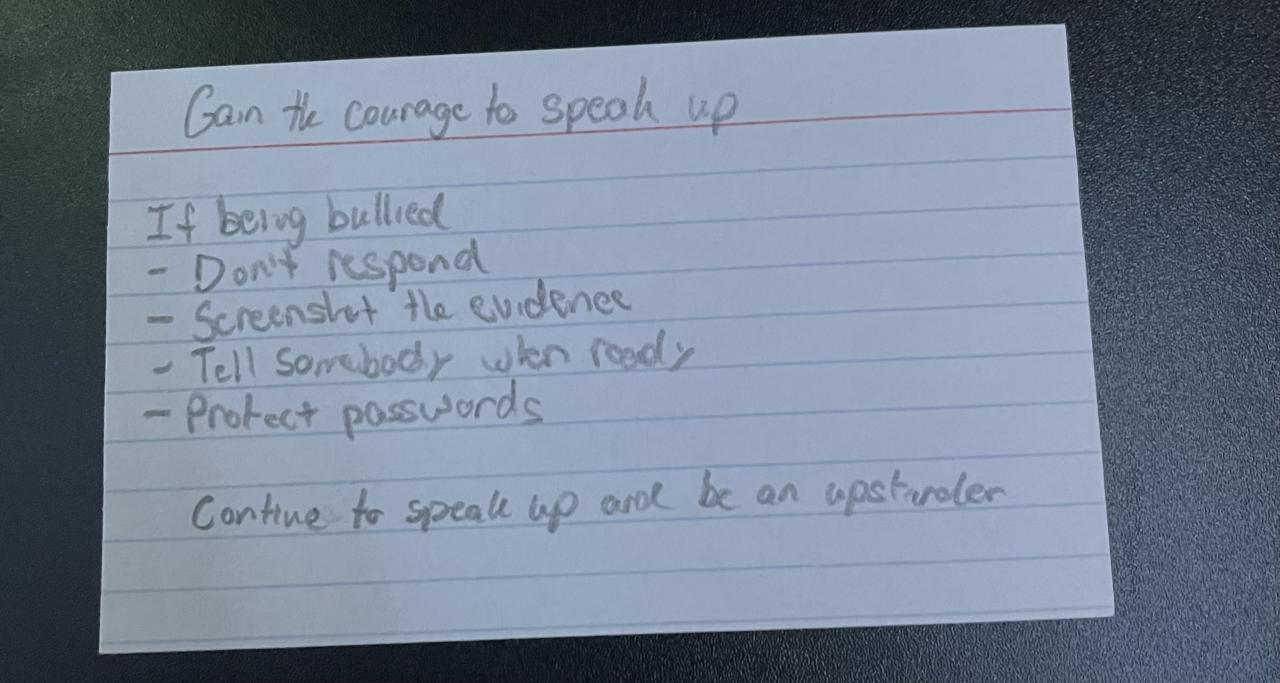 Gain the courage to speak up
If being bullied
- Don't respond
- Screenshot the evidence
- Tell somebody when ready
- Protect passwords
Contine to speak up and be an upstander